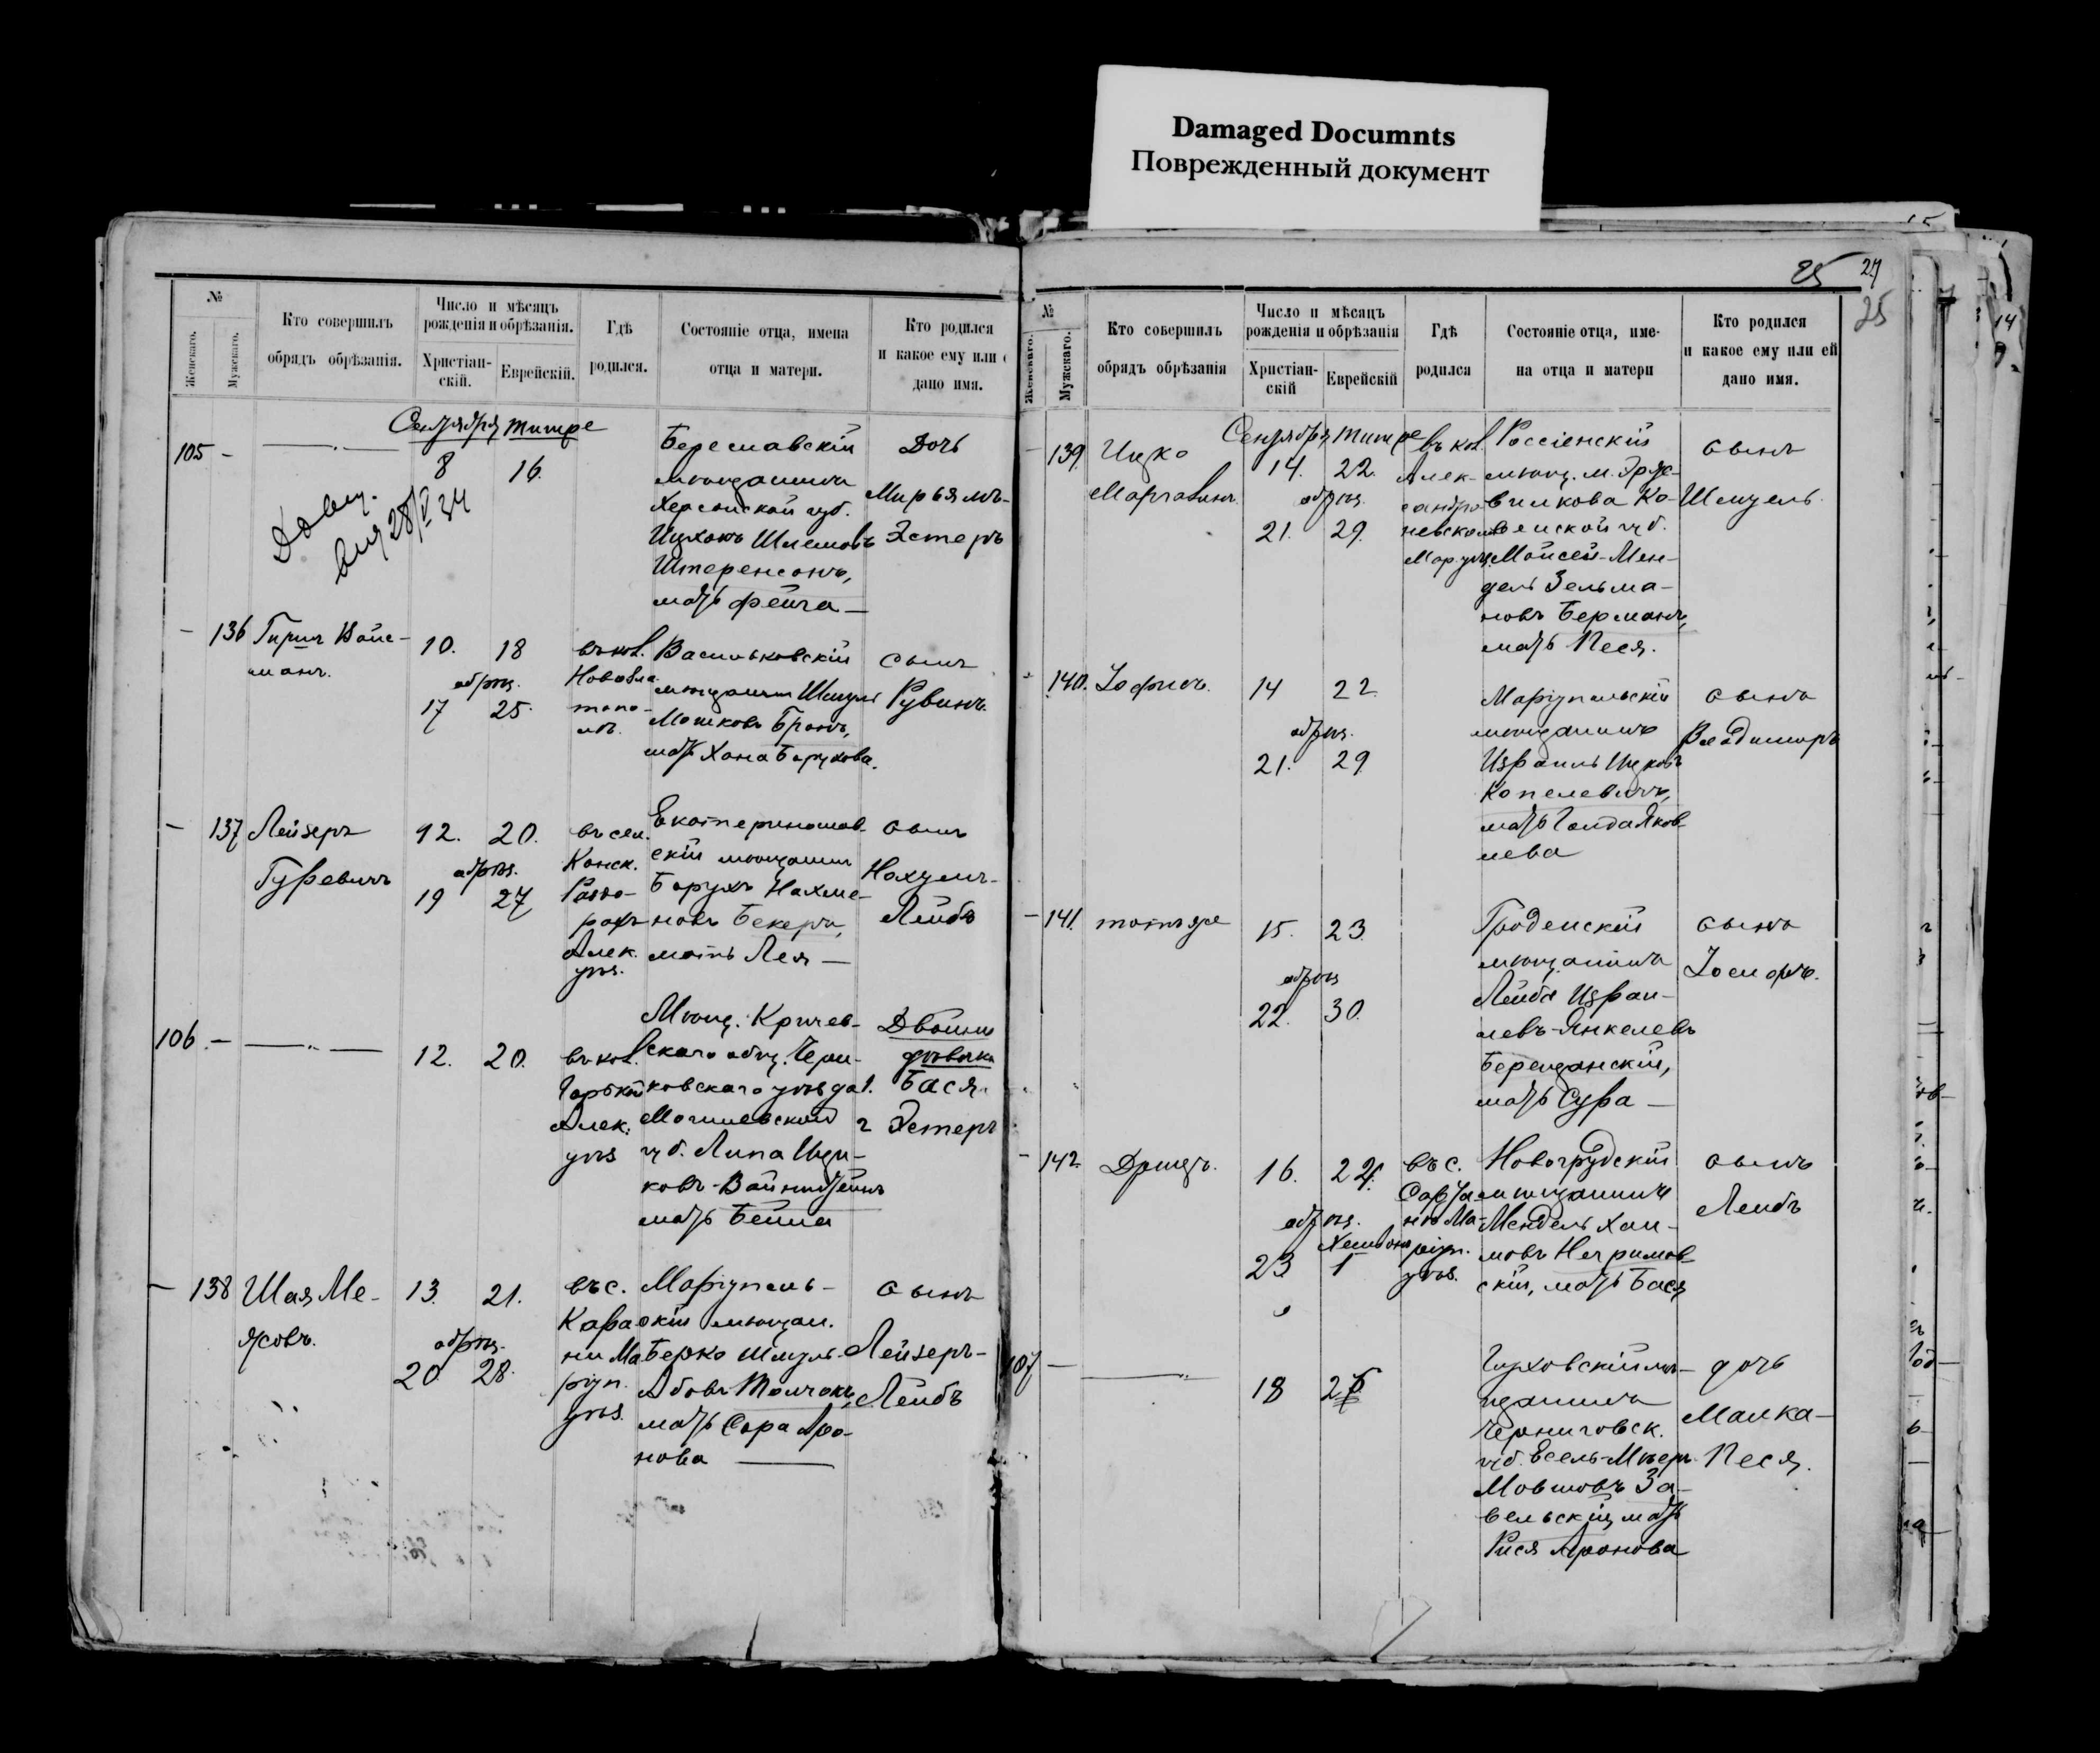 Damaged Documnts
Поврежденный документ
№
Женскаго.
Мужскаго.
Кто совершилъ
обрядъ обрѣзанія.
Число и мѣсяцъ
рожденія и обрѣзанія.
Христіан-
скій.
Еврейскій.
Гдѣ
родился.
Состояніе отца, имена
отца и матери.
Кто родился
и какое ему или
дано имя.
Сентября Тишре
105 -
8 16.
Береславскій
мѣщанинъ
Херсонской губ.
Шлемовъ
Штеренсонъ,
мать Фейга —
Дочь
Мирьямъ-
Эстеръ
28/V 34
- 136
Гиршъ Вайс-
манъ.
10. 18
обрѣз.
17 25.
въ кол.
Васильковскій
мѣщанинъ Шмуль
Мошковъ Бронъ,
мать Хана Борухова.
сынъ
Рувинъ.
- 137
Лейзеръ
Гуревичъ
12. 20.
обрѣз.
19 27
въ сел.
Конск.
Раздо-
рахъ
Алек.
уѣз.
Екатеринослав-
скій мѣщанин
Борухъ Нахма-
новъ Бекеръ,
мать Лея —
сынъ
Нохумъ-
Лейбъ
106. -
12. 20.
въ кол.
Горькой
Алек.
уѣз
Мѣщ. Кричев-
скаго общ. Чери-
ковскаго уѣзда
Могилевской
губ. Липа Ицко-
ковъ-Вайнштейнъ
мать Бейла
Двойни
дѣвочки
1. Бася
2 Эстеръ
- 138
Шая Ме-
жовъ.
13. 21.
обрѣз.
20 28.
въ с.
Кара
ни Ма
ріуп.
уѣз.
Маріуполь-
скій мѣщан.
Берко Шмуль-
мать Сора Аро-
нова —
сынъ
Лейзеръ-
Лейбъ
25 27
25
№
Женскаго.
Мужскаго.
Кто совершилъ
обрядъ обрѣзанія
Число и мѣсяцъ
рожденія и обрѣзанія
Христіан-
скій
Еврейскій
Гдѣ
родился
Состояніе отца, име-
на отца и матери
Кто родился
и какое ему или ей
дано имя.
Сентября Тишре
- 139.
Ицко
14. 22.
обрѣз.
21. 29.
въ кол.
Алек-
сандро
невской
Маріуп.
Россіенскій
мѣщ. м. Эрж-
вилкова Ко-
венской губ.
Мойсей-Мен-
дель Зельма-
новъ Берманъ,
мать Песя.
сынъ
Шмуель.
- 140.
Іофисъ.
14 22
обрѣз.
21. 29
Маріупольскій
мѣщанинъ
Израиль Ицковъ
Копелевичъ,
мать Голда Яков-
лева
сынъ
Владимиръ
- 141.
тотъ же
15. 23.
обрѣз
22. 30.
Гроденскій
мѣщанинъ
Лейба Израи-
левъ-Янкелевъ
мать Сура —
сынъ
Іосифъ.
- 142.
16. 24.
обрѣз.
Хешвонъ
23 1
въ с.
Сарта-
но Ма-
ріуп.
уѣз.
Новогрудскій
мѣщанинъ
Мендель Хаи-
мовъ Негримов-
скій, мать Бася
сынъ
Лейбъ
107 —
18 26
Глуховскій мѣ-
щанинъ
Черниговск.
губ. Есель-Мееръ
Мовшовъ За-
вельскій, мать
Рися Аронова
дочь
Малка-
Песя.